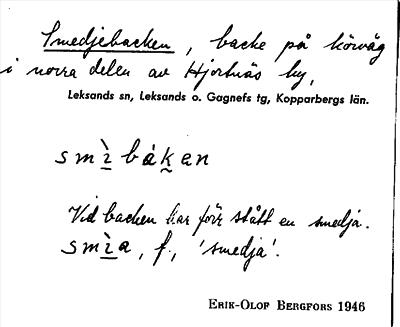 Smedjebacken, backe på körväg
i norra delen av Hjortnäs by,
Leksands sn, Leksands o. Gagnefs tg, Kopparbergs län.
smì̲bákan
Vid backen har förr stått en smedja.
smì̲a, f., 'smedja'.
ERIK-OLOF BERGFORS 1946